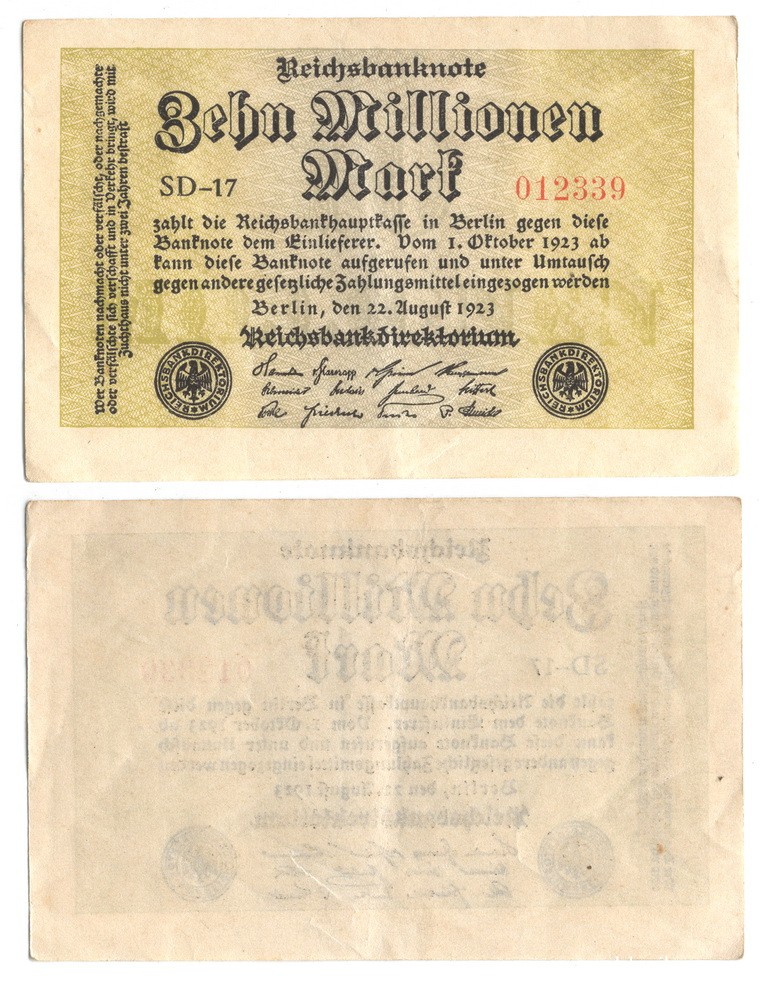 Reichsbanknote
Zehn Millionen
Mark
SD-17
012339
zahlt die Reichsbankhauptkasse in Berlin gegen diese
Banknote dem Einlieferer. Vom 1. Oktober 1923 ab
kann diese Banknote aufgerufen und unter Umtausch
gegen andere gesetzliche Zahlungsmittel eingezogen werden
Berlin, den 22. August 1923
Reichsbankdirektorium
REICHSBANKDIREKTORIUM
REICHSBANKDIREKTORIUM
Wer Banknoten nachmacht oder verfälscht, oder nachgemachte
oder verfälschte sich verschafft und in Verkehr bringt, wird mit
Zuchthaus nicht unter zwei Jahren bestraft